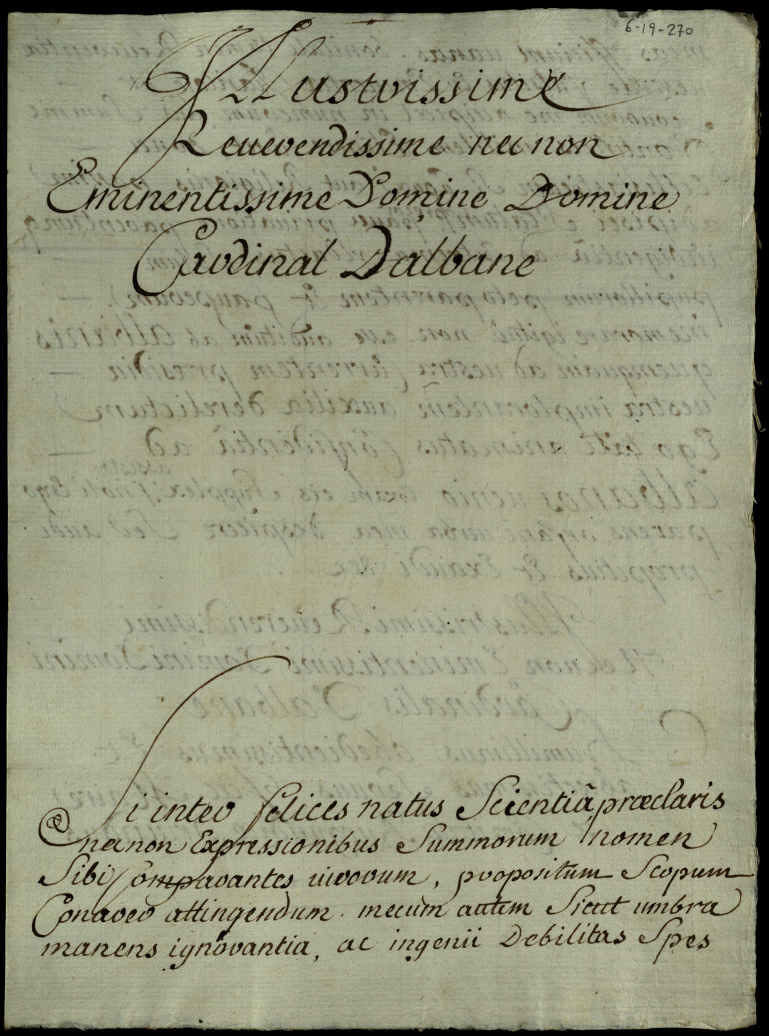 6-19-270
Illustrissime
Reverendissime nec non
Eminentissime Domine Domine
Cardinal Dalbane
Si inter felices natus Scientiâ, præclaris
nec non Expressionibus Summorum nomen
Sibi Comparantes uirorum, propositum Scopum
Conarer attingendum. mecum autem Sicut umbra
manens ignorantia, ac ingenii Debilitas Spes